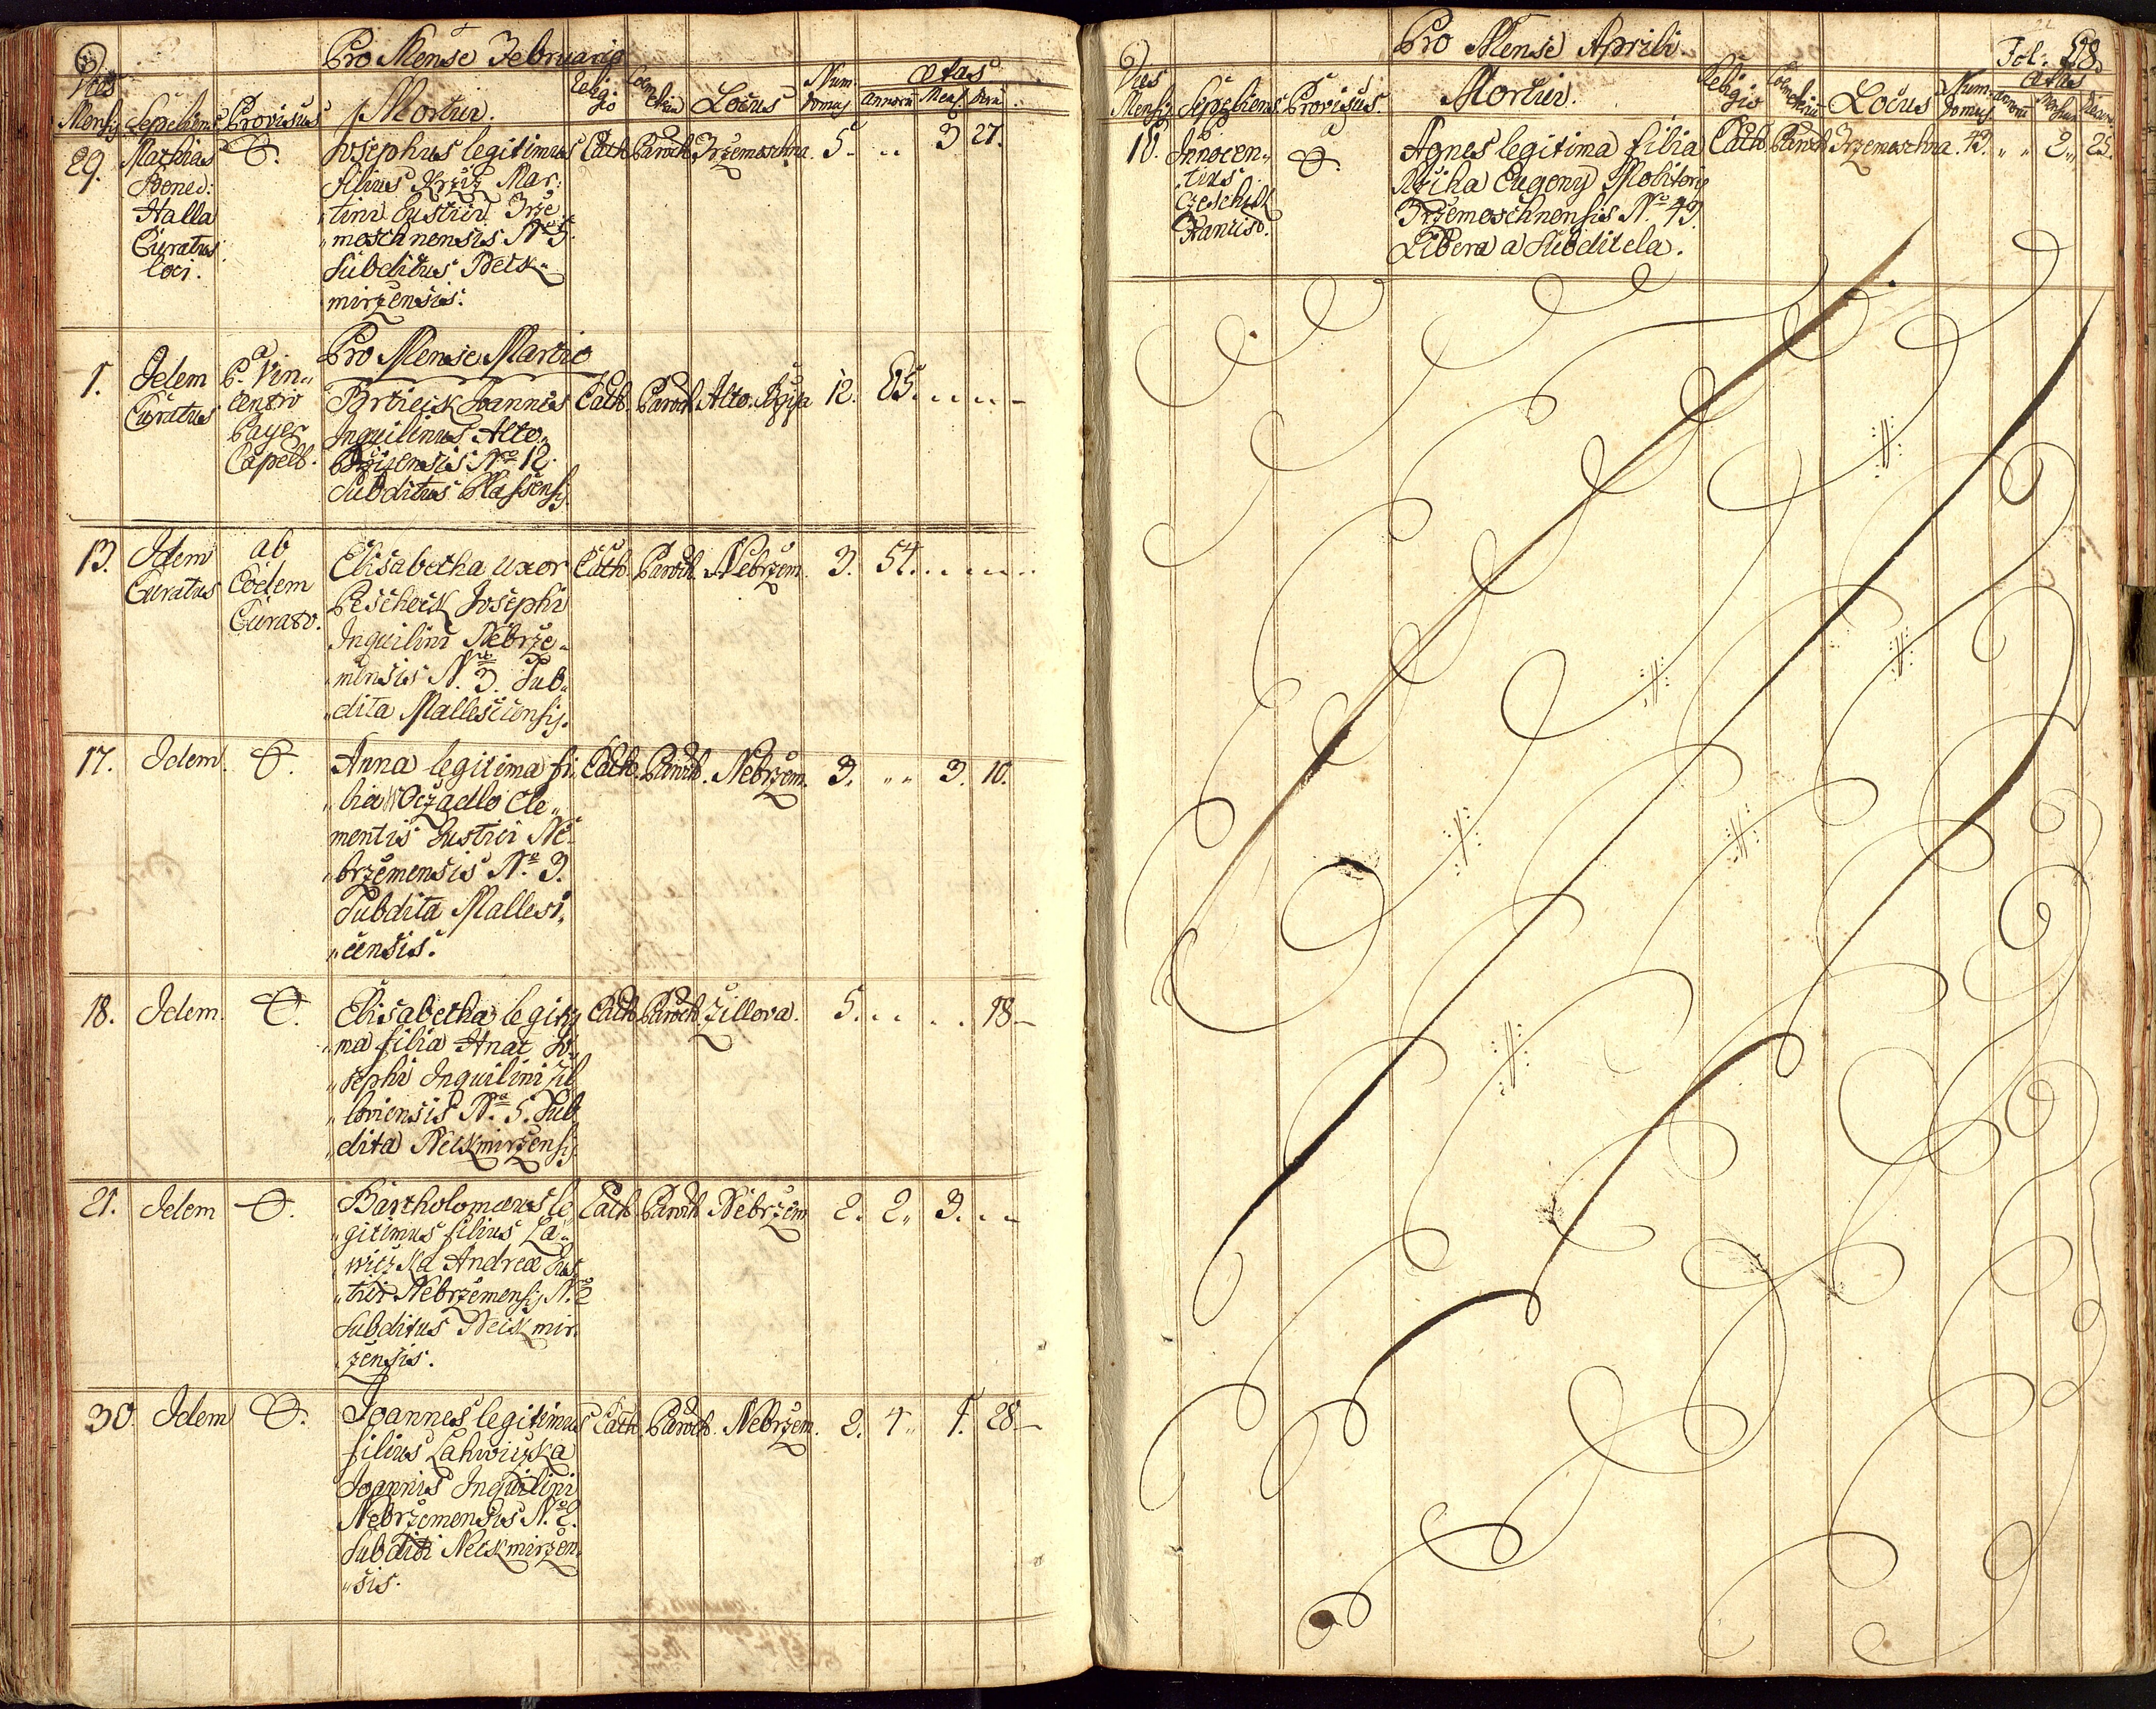 Pro Mense Februario
Dies Mensis Sepeliens Provisus Mortui. Religio Locus Num: domus Ætas Annorū Mens. Dierū
29. Mathias Bened: Halla Curatus loci.
Josephus legitimus
filius Krziz Mar:
tini Rustici Trze
moschnensis Nro 5.
Subditus Neck-
mirzensis.
Cath. Paroch. Trzemoschna. 5. .. 3 27.
Pro Mense Martio
1. Idem Curatus
a P. Vin„
centio
Payer
Capell.
Joannes
Inquilinus Alto„
Brzizensis Nro 12.
Subditus Plassensis
Cath. Paroch. Alto. 12. 65.
13. Idem Curatus
ab
Eodem
Curato.
Elisabetha uxor
Peschek Josephi
Inquilini Nebrze„
mensis Nro 3. Sub„
dita Mallesicensis.
Cath. Paroch. Nebrzem. 3. 54.
17. Idem.
Anna legitima fi„
lia Woczadlo Cle„
mentis Rustici Ne„
brzemensis Nro 3.
Subdita Mallesi„
„censis.
Cath. Paroch. Nebrzem. 3. „ „ 3. 10.
18. Idem.
Elisabetha legiti
„ma filia Hnat Jo„
„sephi Inquilini Zil
„loviensis Nro 5. Sub
„dita Neckmirzensis
Cath. Paroch. Zillova. 5. .. .. 18.
21. Idem
Bartholomæus le
„gitimus filius La„
„wiczka Andreæ Rus
„tici Nebrzemensis N. 2
Subditus Neckmir
zensis.
Cath. Paroch. Nebrzem 2. 2„ 3.
30. Idem
Joannes legitimus
filius Lahwiczka
Joannis Inquilini
Nebrzemensis N. 2.
Subditi Neckmirzen
„sis.
Cath. Paroch. Nebrzem. 2. 4„ 1. 28
6)
Pro Mense Aprili.
Fol: 28.
Dies Mensis Sepeliens Provisus. Mortui. Religio Locus Num: domus Ætas
10. Innocen„
tius
Czeschik
Francisc.
Agnes legitima filia
Rziha Eugeny Molitoris
Trzemoschnensis Nro 43.
Libera a Subditela.
Cath. Paroch. Trzemoschna. 43. „ „ 2„ 25.